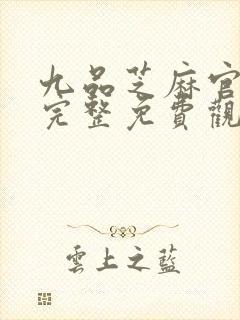 九品芝麻官
完整免費觀
雲上之藍